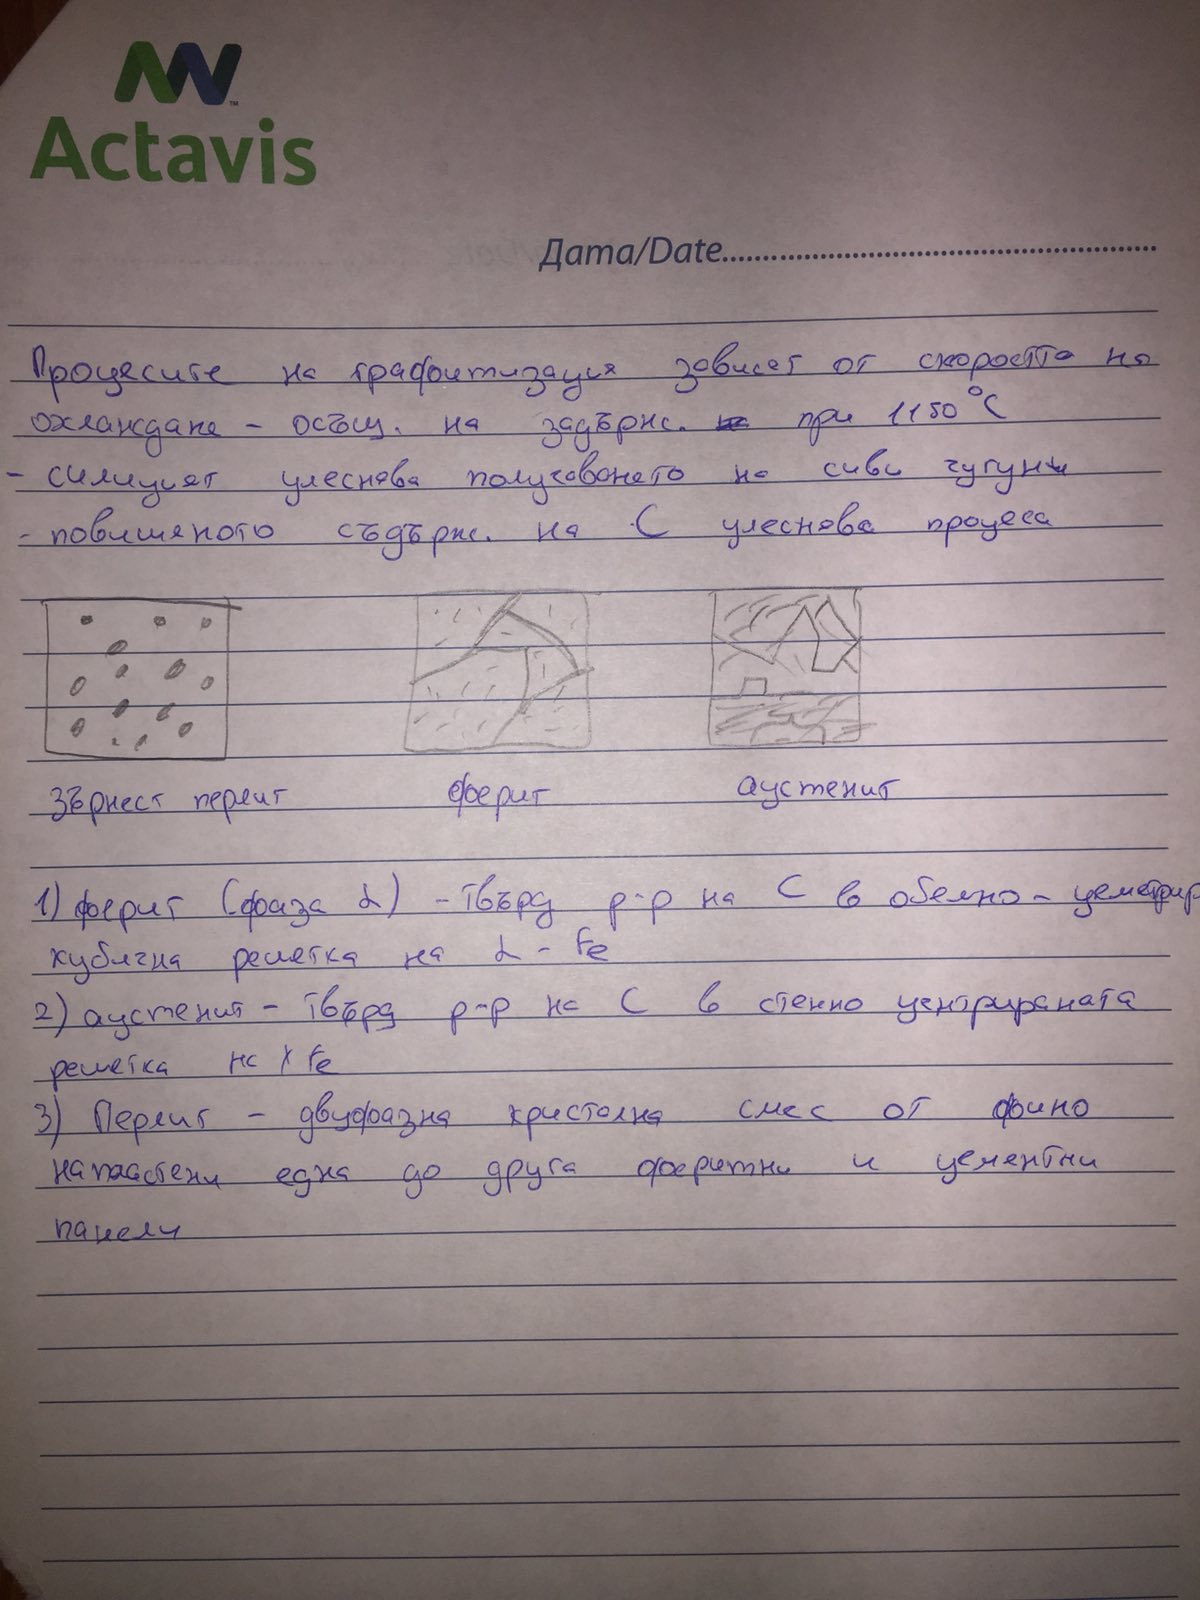 Actavis
Дата/Date
Процесите на графитизация зависят от скоростта на
охлаждане - осъщ. на задърж. при 1150°C
- силицият улеснява получаването на сиви чугуни
- повишеното съдърж. на C улеснява процеса
зърнест перлит ферит аустенит
1) ферит (фаза α) - твърд р-р на C в обемно - центрир
кубична решетка на α - Fe
2) аустенит - твърд р-р на C в стенно центрираната
решетка на γ Fe
3) Перлит - двуфазна кристална смес от фино
напластени една до друга феритни и цементни
панели